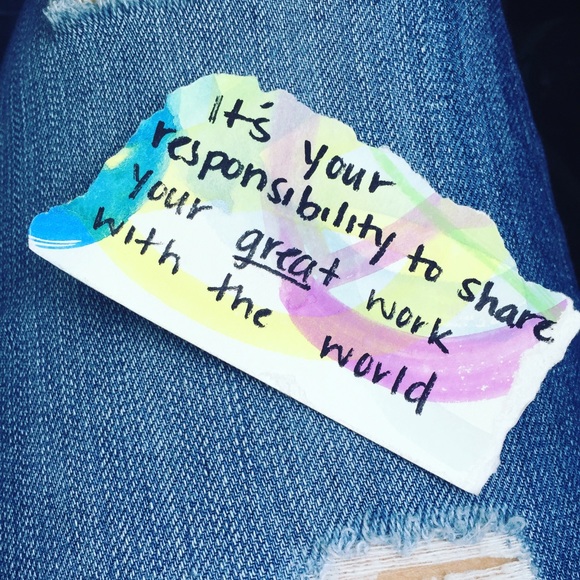 It's your
responsibility to share
your great work
with the world